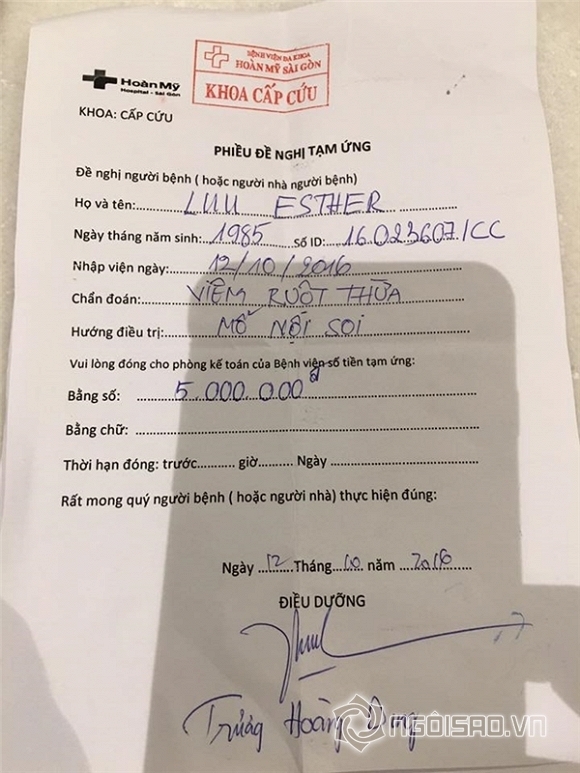 BỆNH VIỆN ĐA KHOA
HOÀN MỸ SÀI GÒN
KHOA CẤP CỨU
HOÀN MỸ
Hospital - Sài Gòn
KHOA: CẤP CỨU
PHIẾU ĐỀ NGHỊ TẠM ỨNG
Đề nghị người bệnh ( hoặc người nhà người bệnh)
Họ và tên: LUU ESTHER
Ngày tháng năm sinh: 1985 Số ID: 16.023607/CC
Nhập viện ngày: 12/10/2016
Chẩn đoán: VIÊM RUỘT THỪA
Hướng điều trị: MỔ NỘI SOI
Vui lòng đóng cho phòng kế toán của Bệnh viện số tiền tạm ứng:
Bằng số: 5.000.000đ
Bằng chữ:
Thời hạn đóng: trước........... giờ.......... Ngày ..............
Rất mong quý người bệnh ( hoặc người nhà) thực hiện đúng:
Ngày 12 Tháng 10 năm 2016
ĐIỀU DƯỠNG
Hoàng
NGÔISAO.VN